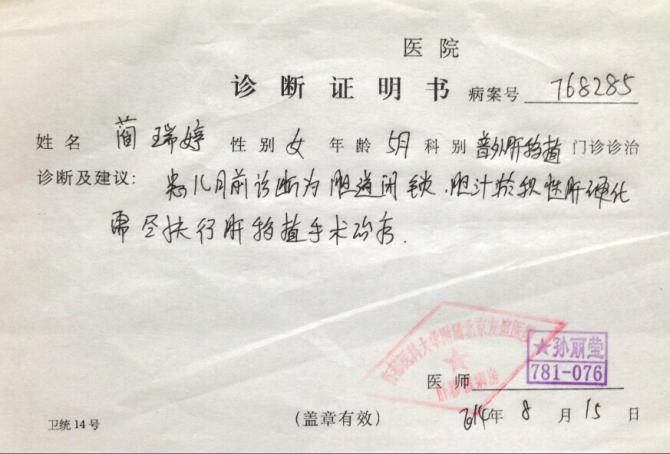 医院
诊断证明书 病案号 768285
姓名 蔺瑞婷 性别 女 年龄 5月 科别 普外肝移植 门诊诊治
诊断及建议: 患儿1月前诊断为胆道闭锁.胆汁淤积性肝硬化
需尽快行肝移植手术治疗.
首都医科大学附属北京友谊医院
★孙丽莹
781-076
医师
2014年8月15日
(盖章有效)
卫统14号